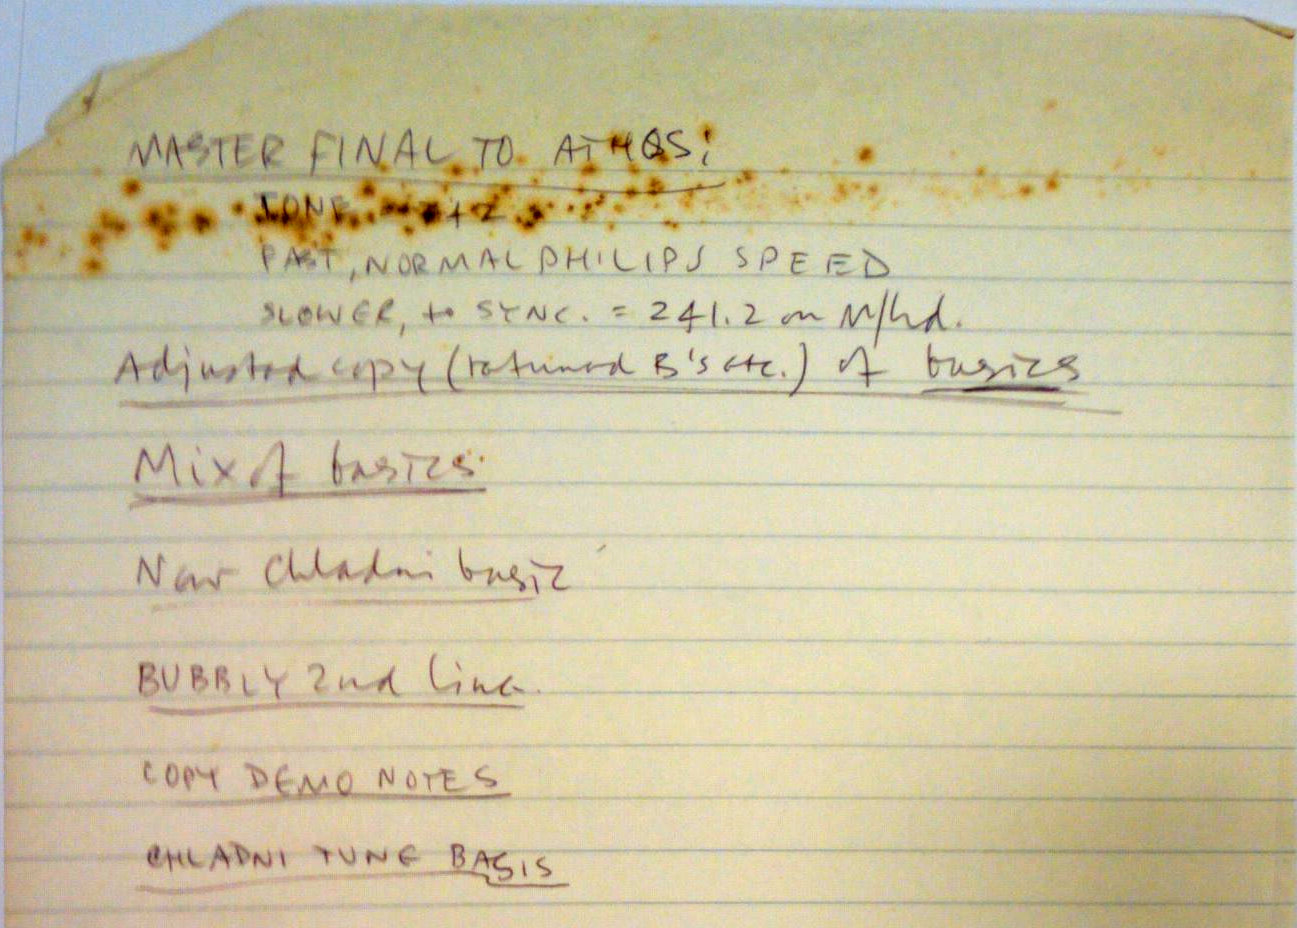 MASTER FINAL TO ATHOS:
TONE
FAST, NORMAL PHILIPS SPEED
SLOWER, to SYNC. = 241.2 on M/hd.
Adjusted copy (retuned B's etc.) of basics
Mix of basics
New Chladni basic
BUBBLY 2nd line.
COPY DEMO NOTES
CHLADNI TUNE BASIS